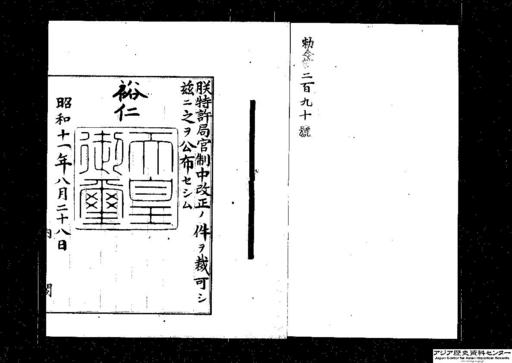 勅令第二百九十號
朕特許局官制中改正ノ件ヲ裁可シ
茲ニ之ヲ公布セシム
裕仁
天皇御璽
昭和十一年八月二十八日
内閣
アジア歴史資料センター
Japan Center for Asian Historical Records